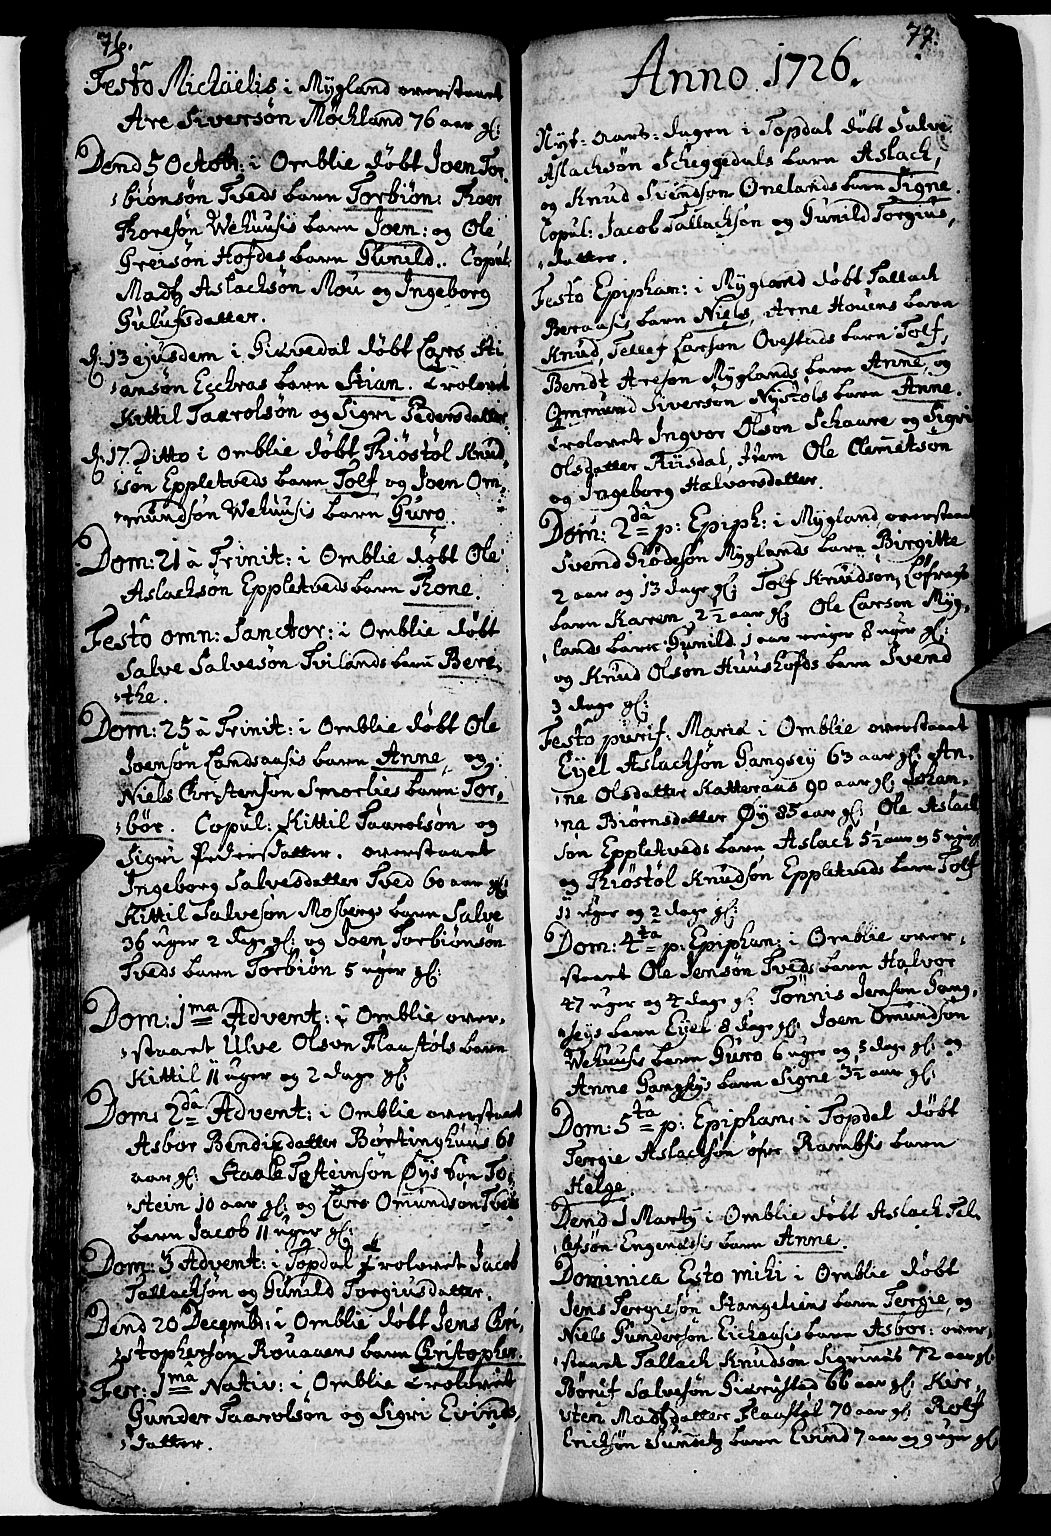 76.
Festo Michaëlis i Mygland overstaaet
Are Siversøn Møckland 76 aar gl:
Dend 5 Octobr: i Omblie døbt Joen Tor-
biønsøn Tveds barn Torbiøn: Thoer
Thoresøn Wehuusis barn Joem: og Ole
Greisøn Hofdes barn Gunild. Copul:
Madtz Aslachsøn Mou og Ingeborg
Gulufsdatter.
d: 13 ejusdem i Giøvedal døbt Lars Sti-
ansøn Eschras barn Stian. Trolovet
Kittil Taarolsøn og Sigri Pedersdatter
d: 17. Ditto i Omblie døbt Thiøstøl Knud-
søn Eppletveds barn Tolf og Joen Om-
mundsøn Wehuusis barn Guro.
Dom: 21 à Trinit: i Omblie døbt Ole
Aslachsøn Eppletveds barn Thone.
Festo omn: Sanctor: i Omblie døbt
Salve Salvesøn Tvilands barn Bere-
the.
Dom: 25 à Trinit: i Omblie døbt Ole
Joensøn Landsaasis barn Anne, og
Niels Christensøn Smorlies barn Tor-
bør. Copul: Kittil Taarolsøn og
Sigri Pedersdatter. overstaaet
Ingeborg Salvesdatter Tved 60 aar gl:
Kittil Salvesøn Mosbergs barn Salve
36 uger 2 dage gl: og Joen Torbiønsøn
Tveds barn Torbiøn 5 uger gl:
Dom: 1ma Advent: i Omblie over-
staaet Ulve Olsøn Flaastøls barn
Kittil 11 uger og 2 dage gl:
Dom: 2da Advent: i Omblie overstaaet
Asbor Bendixdatter Børtinghuus 60
aar gl: Staale Tosteinsøn Øys søn To-
stein 10 aar gl: og Lars Omundsøn Tveds
barn Jacob 11 uger gl:
Dom: 3 Advent: i Topdal Trolovet Jacob
Tallachsøn og Gunild Torgiusdatter.
Dend 20 Decembr: i Omblie døbt Jens Chri-
stophersøn Rouaaens barn Christopher.
Fer: 1ma Nativ: i Omblie Trolovet
Gunder Taarolsøn og Sigri Evinds-
datter.
77.
Anno 1726.
Nyt-Aars-dagen i Topdal døbt Salve
Aslachsøn Scheggedals barn Aslach,
og Knud Svendsøn Onelands barn Signe.
Copul: Jacob Tallachsøn og Gunild Torgius-
datter.
Festo Epiphan: i Mygland døbt Tallach
Beraasis barn Niels, Arne Houens barn
Knud, Tellef Larsøn Ovestads barn Tolf,
Bendt Aresøn Myglands barn Anne, og
Ommund Siversøn Nystøls barn Anne.
Trolovet Ingvor Olsøn Schaare og Sigri
Olsdatter Riisdal, Item Ole Clemmetsøn
og Ingeborg Halvorsdatter.
Dom: 2da p: Epiph: i Mygland overstaaet
Svend Rødesøn Myglands barn Birgitte
2 aar og 13 dage gl: Tolf Knudsøn Løfraas
barn Karen 2½ aar gl: Ole Larsøn Myg-
lands barn Gunild 1 aar ringer 8 uger gl:
og Knud Olsøn Huushofds barn Svend
3 dage gl:
Festo purif: Mariæ i Omblie overstaaet
Eyel Aslachsøn Gangsey 63 aar gl: An-
ne Olsdatter Katteraas 90 aar gl: Johan-
na Biørnsdatter Øy 85 aar gl: Ole Aslach-
søn Eppletveds barn Aslach 5½ aar og 5 uger
og Thiøstøl Knudsøn Eppletveds barn Tolf
11 uger og 2 dage gl:
Dom: 4ta p: Epiphan: i Omblie over-
staaet Ole Jensøn Tveds barn Halvor
47 uger og 4 dage gl: Tønnis Jensøn Gang-
seys barn Eyel 8 dage gl: Joen Omundsøn
Wehuusis barn Guro 6 uger og 5 dage gl: og
Anne Gangseys barn Signe 3½ aar gl:
Dom: 5ta p: Epiphan: i Topdal døbt
Tergie Aslachsøn øfre Ramsis barn
Helge.
Dend 1 Martij i Omblie døbt Aslach Tel-
lefsøn Engenæsis barn Anne.
Dominica Esto mihi i Omblie døbt
Jens Tergiesøn Stangeliens barn Tergie, og
Niels Gundersøn Eichaasis barn Asbor: over-
staaet Tallach Knudsøn Sigrinæs 72 aar gl:
Børuf Salvesøn Giørustad 66 aar gl: Kir-
sten Madtzdatter Flaastøl 70 aar gl: Rolf
Erichsøn barn Evind 7 aar og 9 uger gl: